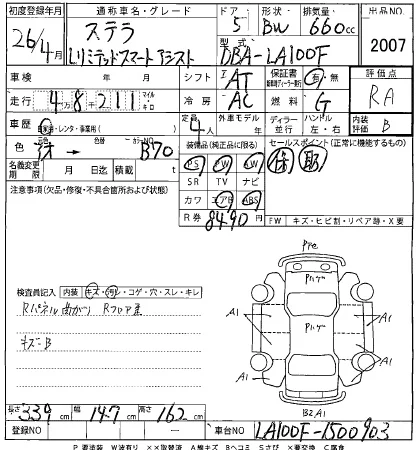 初度登録年月 通称車名・グレード ドア 形状 排気量 出品NO
26/4月 ステラ 5 BW 660cc
Lリミテッドスマートアシスト 型式 DBA-LA100F 2007
車検 年 月 シフト IAT 保証書 有・無 評価点
走行 4万8千211 マイル キロ 冷房 AC 燃料 G RA
車歴 自家用・レンタ・事業用( ) 定員 4人 外車モデル 年 ディーラー 並行 ハンドル 左・右 内装評価 B
色 → 色替 カラーNO B70 装備品(純正品に限る) セールスポイント(正常に機能するもの)
名義変更期限 月 日迄 積載 t PS PW AW 保 取
注意事項(欠品・修復・不具合箇所および状態) SR TV ナビ
カワ エアB ABS
R券 8490円 FW キズ・ヒビ割・リペア跡・X要
検査員記入 内装 キズ・汚レ・コゲ・穴・スレ・キレ
Rパネル曲がり Rフロア歪
キズニB
A1 A1
A1 A1
B2,A1
長さ 339cm 幅 147cm 高さ 162cm
登録NO — 車台NO LA100F-1500903
P 要塗装 W波有り ××取替済 A線キズ Bヘコミ Sサビ ×要交換 C腐食